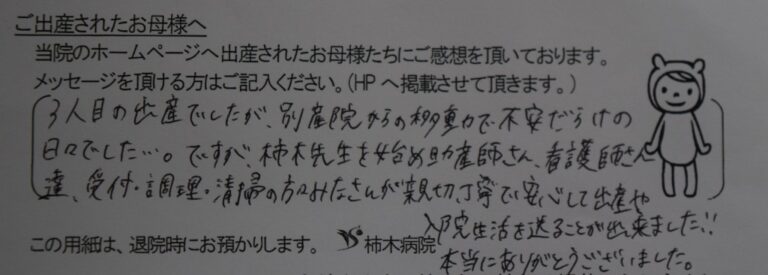 ご出産されたお母様へ
当院のホームページへ出産されたお母様たちにご感想を頂いております。
メッセージを頂ける方はご記入ください。(HPへ掲載させて頂きます。)
3人目の出産でしたが、別産院からの移動で不安だらけの
日々でした…。ですが、柿木先生を始め助産師さん、看護師さん
達、受付・調理・清掃の方々みなさんが親切丁寧で安心して出産や
入院生活を送ることが出来ました!!
本当にありがとうございました。
この用紙は、退院時にお預かりします。 柿木病院